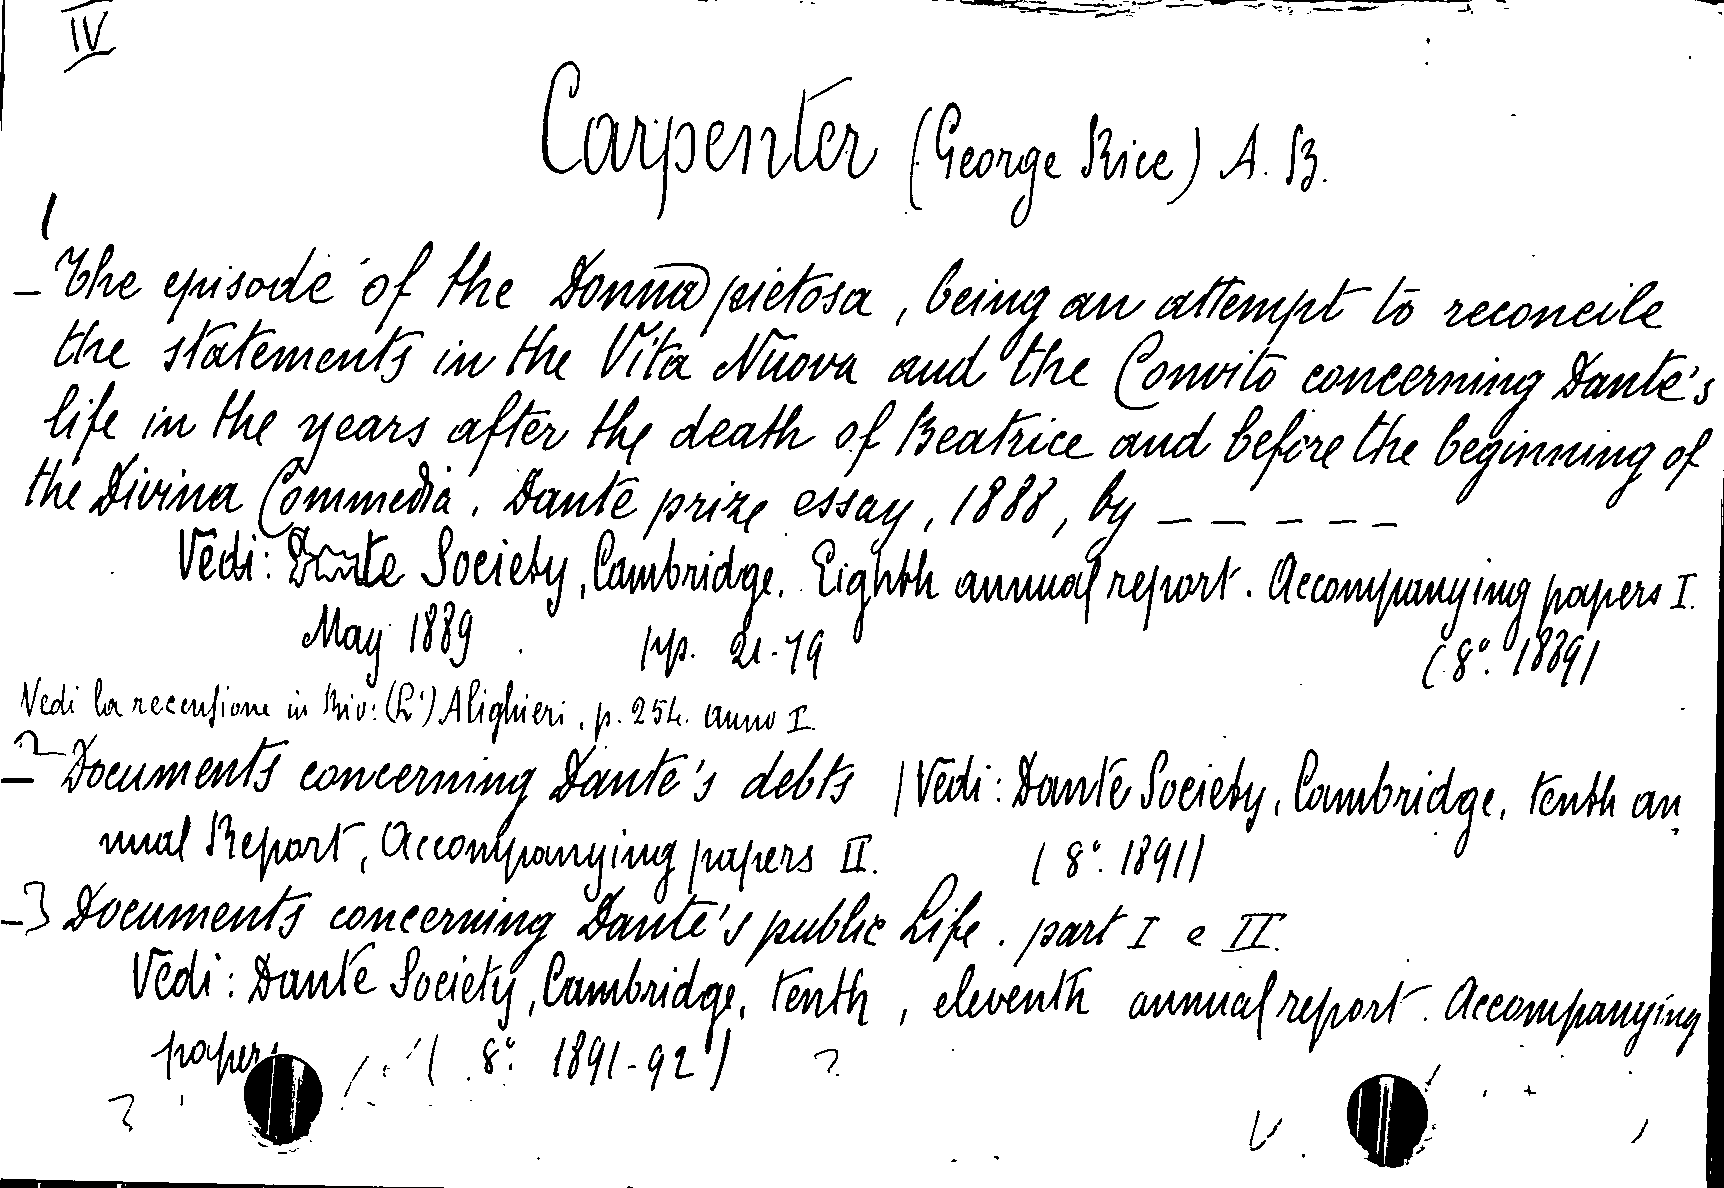 IV
Carpenter (George Rice) A. B.
1
- The episode of the Donna pietosa, being an attempt to reconcile
the statements in the Vita Nuova and the Convito concerning Dante's
life in the years after the death of Beatrice and before the beginning of
the Divina Commedia. Dante prize essay, 1888, by _ _ _ _ _
Vedi: Dante Society, Cambridge. Eighth annual report. Accompanying papers I.
May 1889 pp. 21-79 (8°. 1889)
Vedi la recensione in Riv: (L') Alighieri, p. 254. anno I.
- 2 Documents concerning Dante's debts | Vedi: Dante Society, Cambridge, tenth an
nual Report, Accompanying papers II. (8°. 1891)
- 3 Documents concerning Dante's public Life. part I e II.
Vedi: Dante Society, Cambridge, tenth, eleventh annual report. Accompanying
papers (8°. 1891-92)